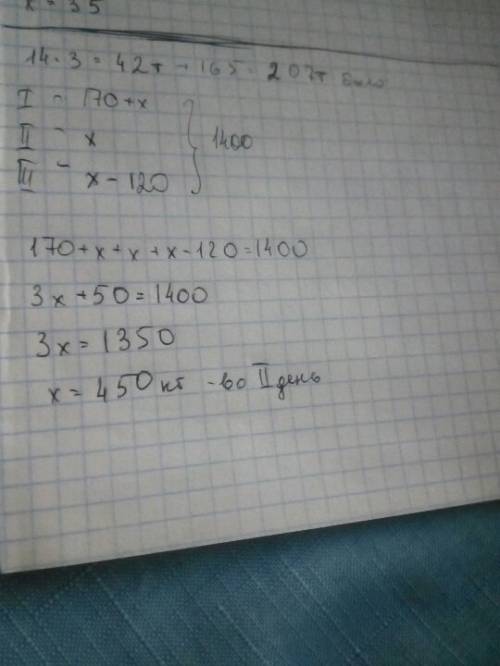 x = 35
14 · 3 = 42т + 165 = 207т было
I - 170+x
II - x } 1400
III - x - 120
170+x+x+x-120=1400
3x+50=1400
3x=1350
x=450 кг - во II день